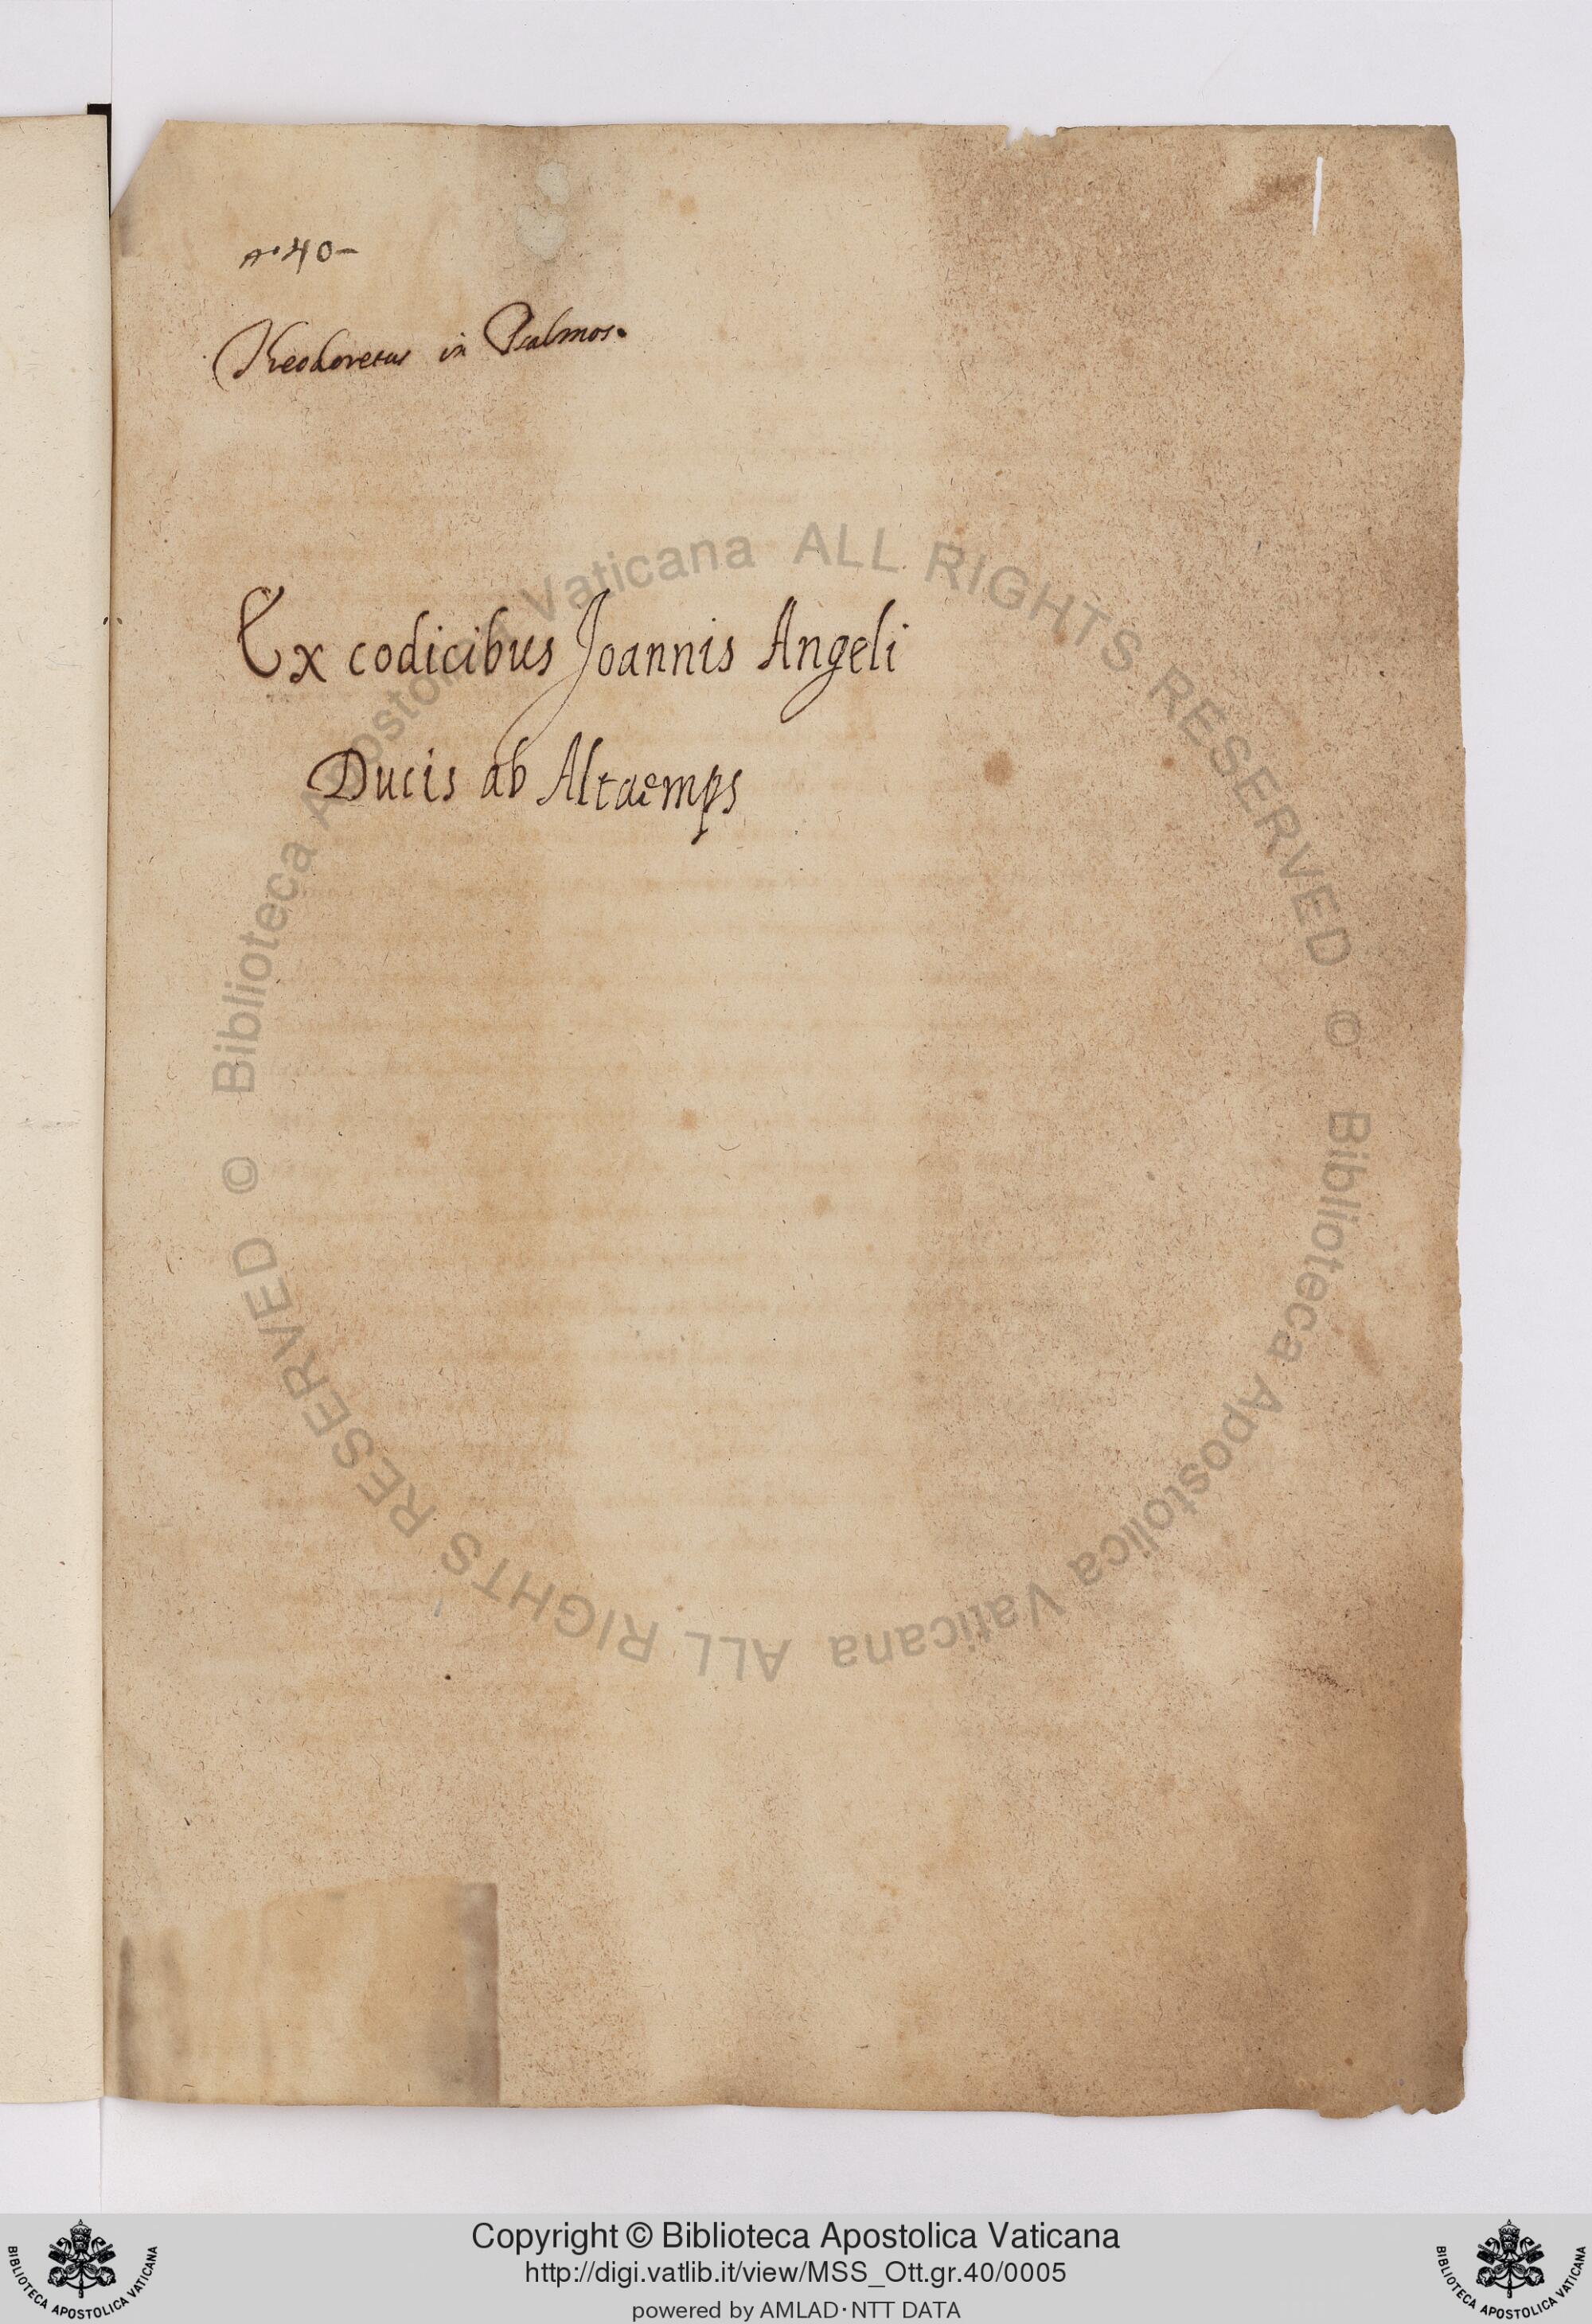 nº 40-
Theodoretus in Psalmos.
Ex codicibus Joannis Angeli
Ducis ab Altaemps
© Biblioteca Apostolica Vaticana ALL RIGHTS RESERVED © Biblioteca Apostolica Vaticana ALL RIGHTS RESERVED
Copyright © Biblioteca Apostolica Vaticana
http://digi.vatlib.it/view/MSS_Ott.gr.40/0005
powered by AMLAD·NTT DATA
BIBLIOTECA APOSTOLICA VATICANA
BIBLIOTECA APOSTOLICA VATICANA